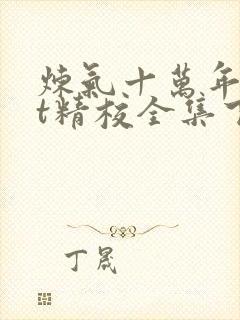 煉氣十萬年
t精校全集
丁晟